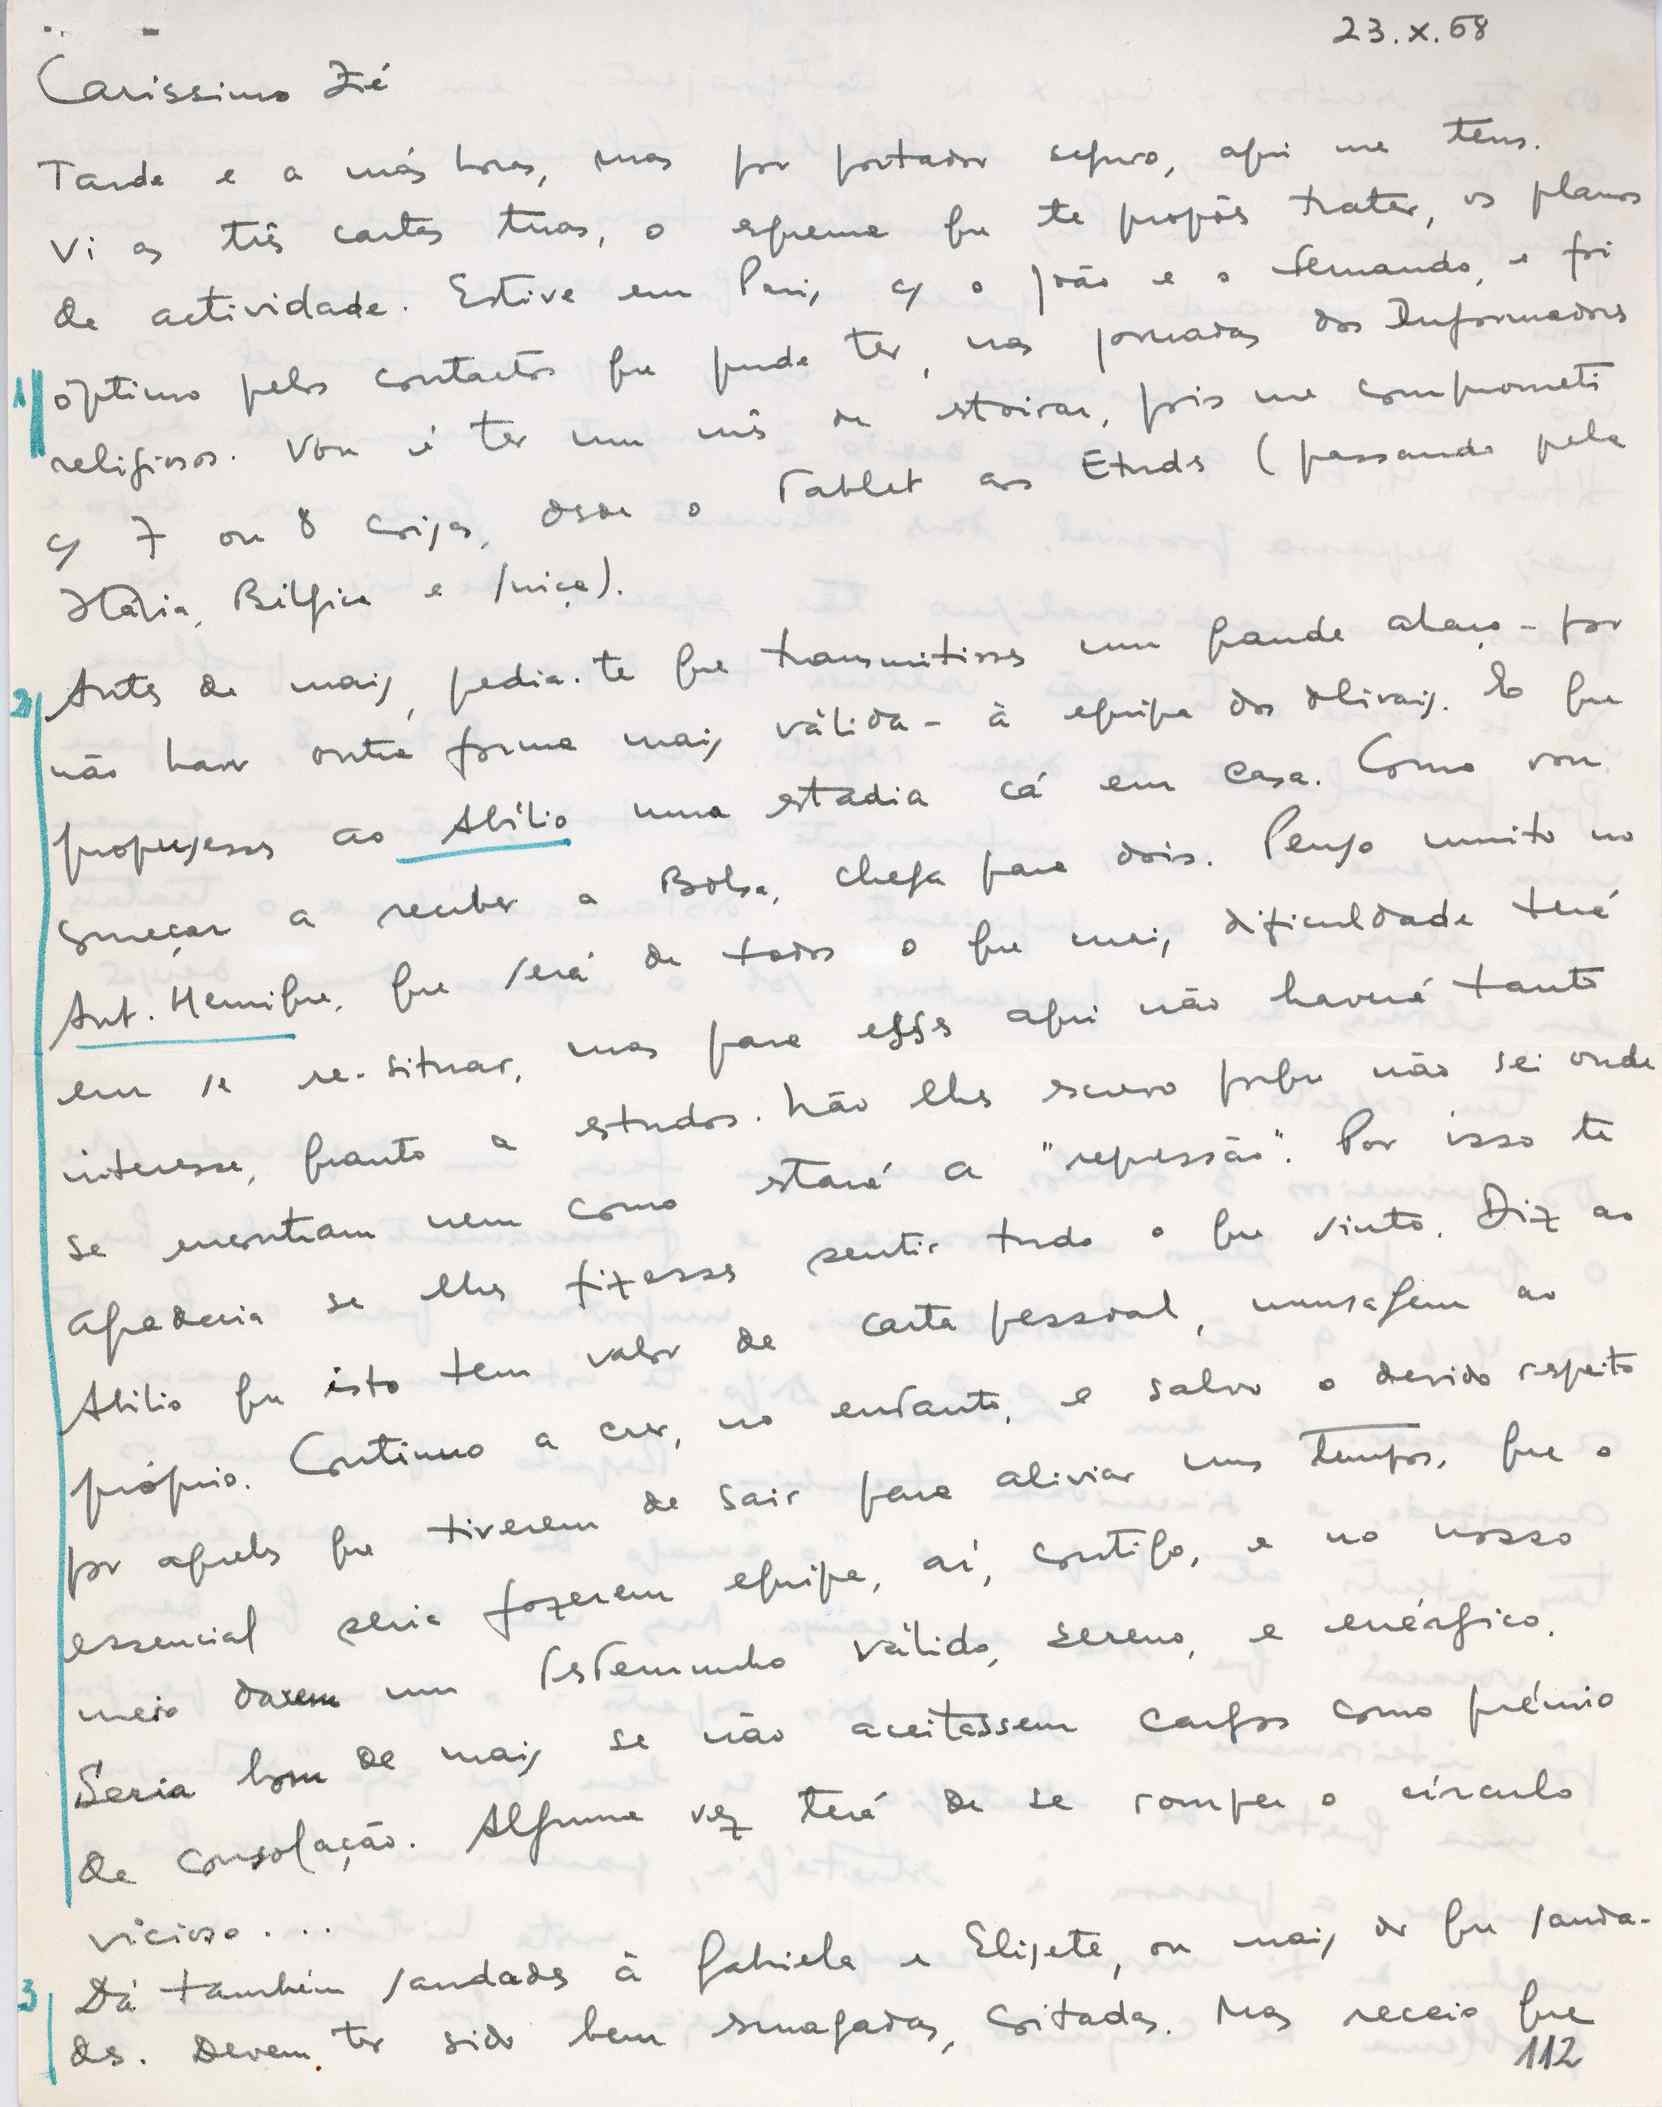 23.X.68
Caríssimo Zé
Tarde e a más horas, mas por portador seguro, aqui me tens.
Vi as três cartas tuas, o esquema que te propões tratar, os planos
de actividade. Estive em Paris c/ o João e o Fernando, e foi
1 óptimo pelos contactos que pude ter, nas jornadas dos Informadores
religiosos. Vou é ter um mês de estoirar, pois me comprometi
c/ 7 ou 8 coisas, desde o Tablet aos Études (passando pela
Itália, Bélgica e Suíça).
Antes de mais, pedia-te que transmitisses um grande abraço - por
2 não haver outra forma mais válida - à equipa dos Olivais. E que
propusesses ao Abílio uma estadia cá em casa. Como vou
começar a receber a Bolsa, chega para dois. Penso muito no
Ant. Henrique, que será de todos o que mais dificuldade terá
em se re-situar, mas para esses aqui não haverá tanto
interesse, quanto a estudos. Não lhes escrevo porque não sei onde
se encontram nem como estará a "repressão". Por isso te
agradecia se lhes fizesses sentir tudo o que sinto. Diz ao
Abílio que isto tem valor de carta pessoal, mensagem ao
próprio. Continuo a crer, no entanto, e salvo o devido respeito
por aqueles que tiverem de sair para aliviar uns tempos, que o
essencial seria fazerem equipa, aí, contigo, e no nosso
meio darem um testemunho válido, sereno, e enérgico.
Seria bom de mais se não aceitassem cargos como prémio
de consolação. Alguma vez terá de se romper o círculo
vicioso...
3 Dá também saudades à Gabriela e Elisete, ou mais do que sauda-
des. Devem ter sido bem esmagadas, coitadas. Mas receio que
112